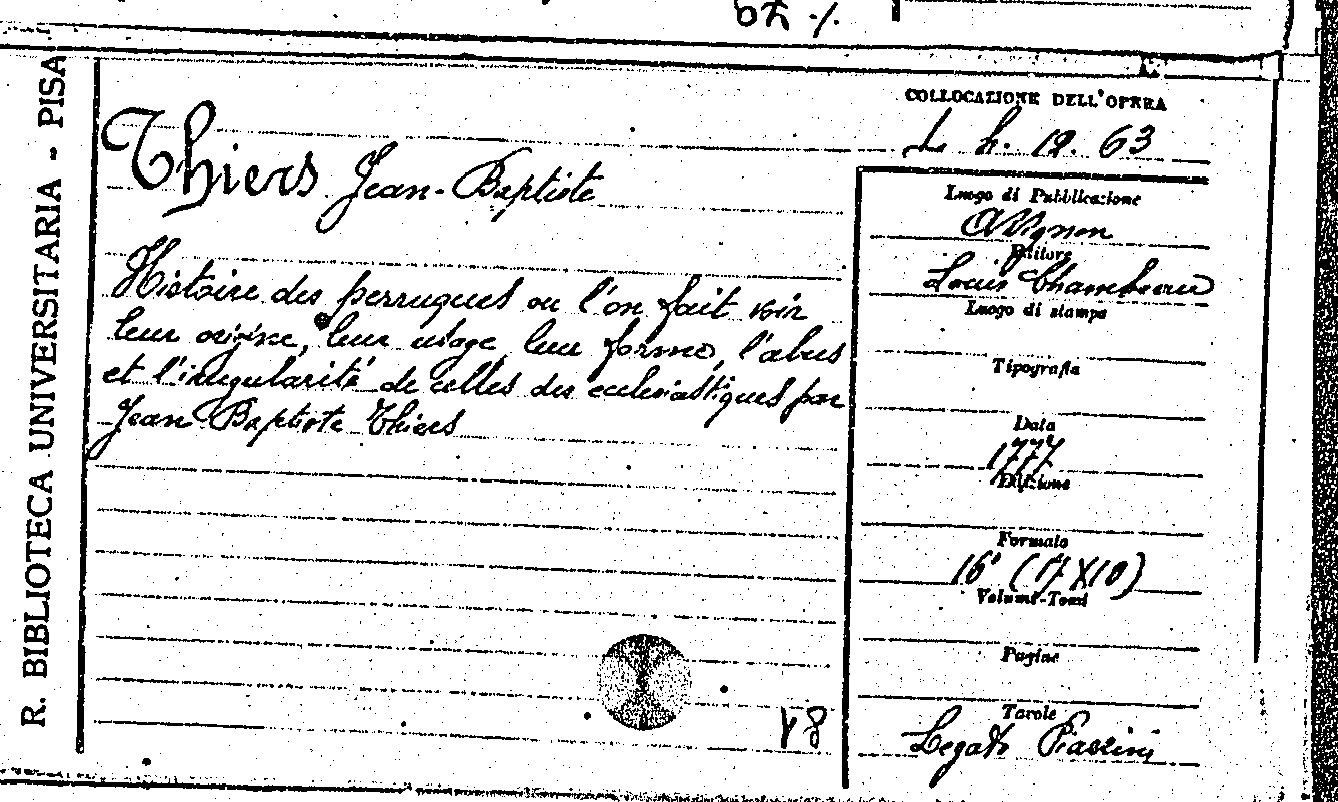 R. BIBLIOTECA UNIVERSITARIA - PISA
COLLOCAZIONE DELL'OPERA
L h. 12. 63
Thiers Jean-Baptiste
Histoire des perruques ou l'on fait voir
leur origine, leur usage leur forme, l'abus
et l'irregularité de celles des ecclesiastiques par
Jean Baptiste Thiers
Luogo di Pubblicazione
Avignon
Editore
Louis Chambeau
Luogo di stampa
Tipografia
Data
1777
Edizione
Formato
16° (17X10)
Volumi-Tomi
Pagine
Tavole
Legato Piazzini